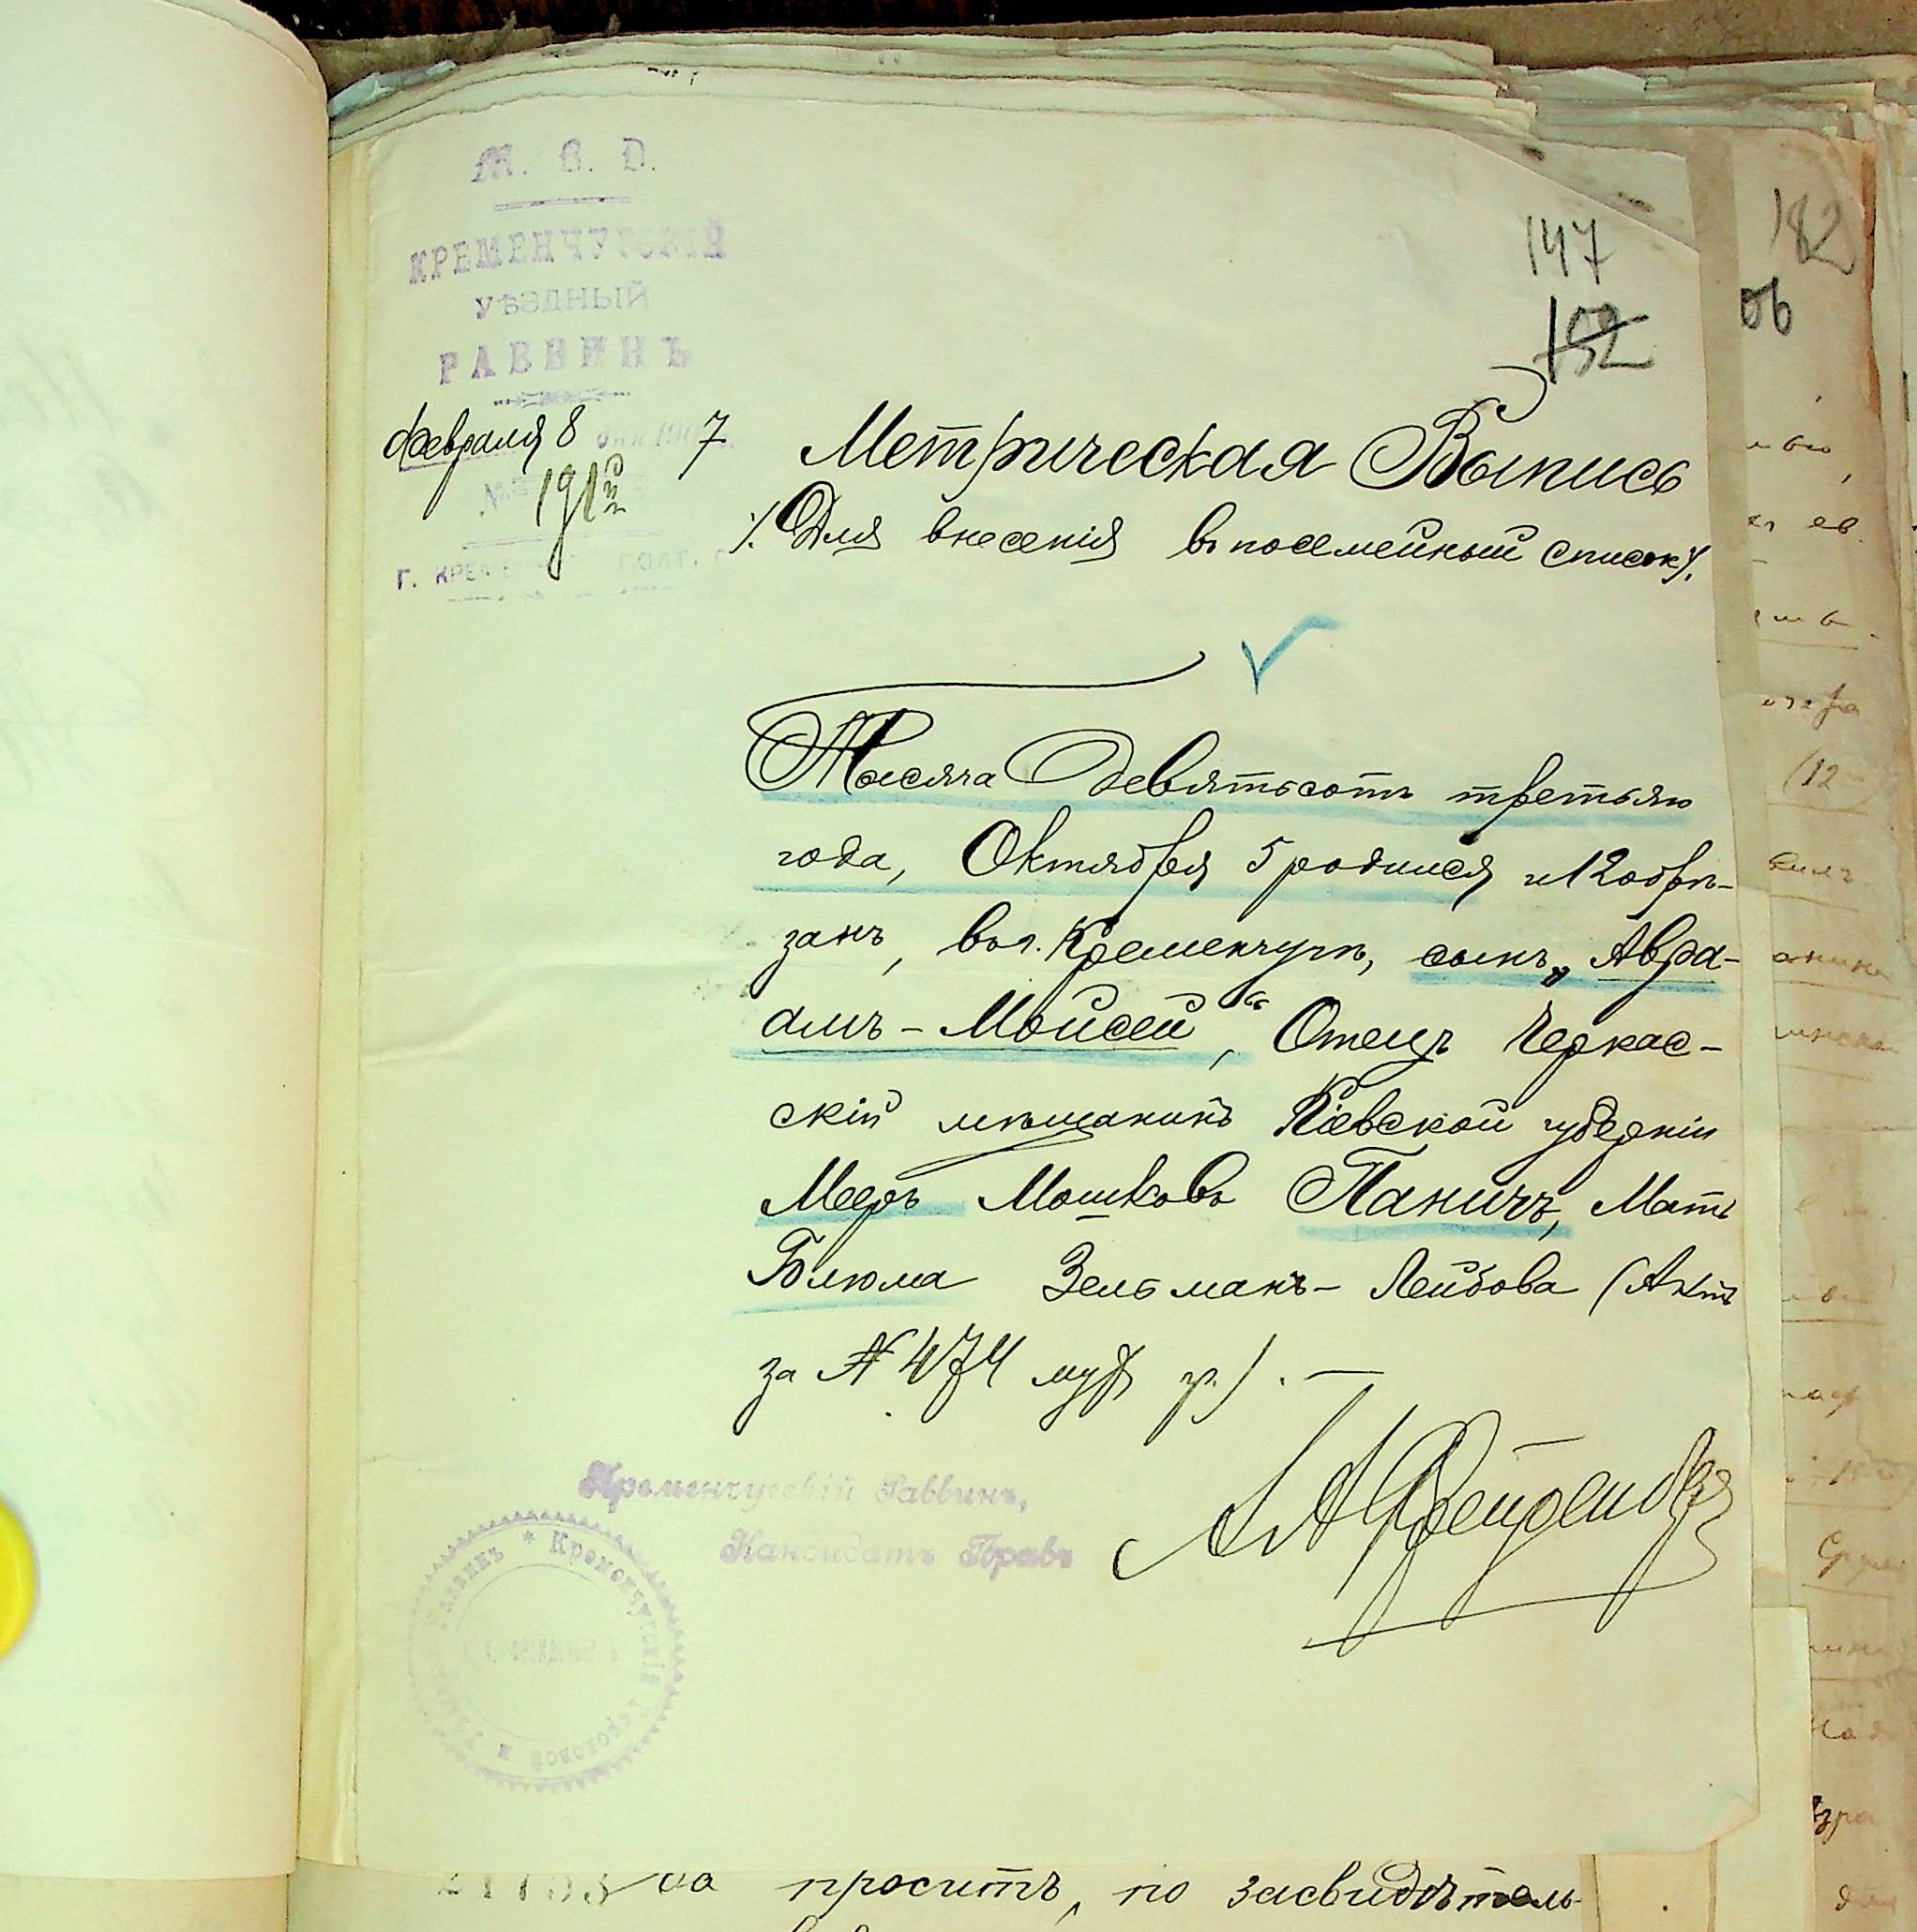 М. В. Д.
КРЕМЕНЧУГСКІЙ
УѢЗДНЫЙ
РАВВИНЪ
Февраля 8 дня 1907
№ 191
Г. КРЕМ ПОЛТ. Г
147
152
182
Метрическая Выпись
/. Для внесенія въ посемейный списокъ/.
Тысяча девятьсотъ третьяго
года, Октября 5 родился и 12 обрѣ-
занъ, въ г. Кременчугѣ, сынъ „Авра-
амъ-Мойсей“, Отецъ Черкас-
скій мѣщанинъ Кіевской губерніи
Мееръ Мошковъ Паничъ, Мать
Блюма Зельманъ-Лейбова (Актъ
за № 474 муж гр.). —
Кременчугскій Раввинъ,
Кандидатъ Правъ
Кременчугскій Городовой и Раввинъ
да проситъ, по засвидѣтель-